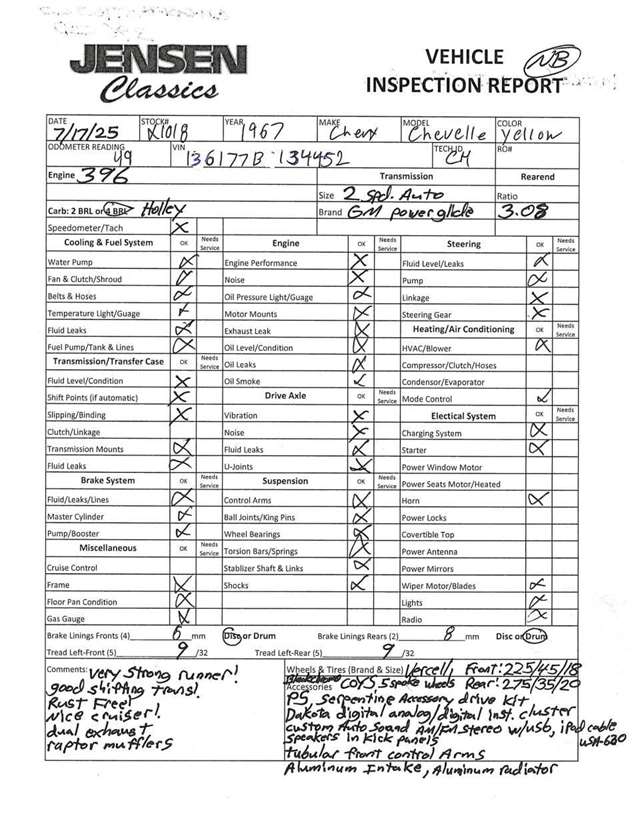 JENSEN
Classics
VEHICLE
INSPECTION REPORT
NB
DATE 7/17/25 STOCK# K1018 YEAR 1967 MAKE Chevy MODEL Chevelle COLOR Yellow
ODOMETER READING 49 VIN 136177B 134452 TECH ID CH RO#
Engine 396 Transmission Rearend
Size 2 Spd. Auto Ratio
Carb: 2 BRL or 4 BRL Holley Brand GM powerglide 3.08
Speedometer/Tach X
Cooling & Fuel System OK Needs Service Engine OK Needs Service Steering OK Needs Service
Water Pump X Engine Performance X Fluid Level/Leaks X
Fan & Clutch/Shroud X Noise X Pump X
Belts & Hoses X Oil Pressure Light/Guage X Linkage X
Temperature Light/Guage X Motor Mounts X Steering Gear X
Fluid Leaks X Exhaust Leak X Heating/Air Conditioning OK Needs Service
Fuel Pump/Tank & Lines X Oil Level/Condition X HVAC/Blower X
Transmission/Transfer Case OK Needs Service Oil Leaks X Compressor/Clutch/Hoses
Fluid Level/Condition X Oil Smoke ✓ Condensor/Evaporator
Shift Points (if automatic) X Drive Axle OK Needs Service Mode Control X
Slipping/Binding X Vibration X Electical System OK Needs Service
Clutch/Linkage Noise X Charging System X
Transmission Mounts X Fluid Leaks X Starter X
Fluid Leaks X U-Joints X Power Window Motor
Brake System OK Needs Service Suspension OK Needs Service Power Seats Motor/Heated
Fluid/Leaks/Lines X Control Arms X Horn X
Master Cylinder X Ball Joints/King Pins X Power Locks
Pump/Booster X Wheel Bearings X Covertible Top
Miscellaneous OK Needs Service Torsion Bars/Springs X Power Antenna
Cruise Control Stablizer Shaft & Links X Power Mirrors
Frame X Shocks X Wiper Motor/Blades X
Floor Pan Condition X Lights X
Gas Gauge X Radio X
Brake Linings Fronts (4) 6 mm Disc or Drum Brake Linings Rears (2) 8 mm Disc or Drum
Tread Left-Front (5) 9 /32 Tread Left-Rear (5) 9 /32
Comments: very strong runner!
good shifting trans!
Rust Free!
Nice cruiser!
dual exhaust
raptor mufflers
Wheels & Tires (Brand & Size) Vercelli, Front: 225/45/18
Accessories COYS 5 spoke wheels Rear: 275/35/20
PS, Serpentine Accessory drive kit
Dakota digital analog/digital inst. cluster
custom Auto Sound AM/FM stereo w/usb, ipod cable
speakers in kick panels USA-630
tubular front control Arms
Aluminum Intake, Aluminum radiator